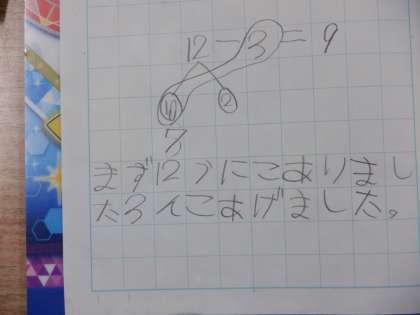 12-3=9
10 2
7
まず12つにこありまし
た3くこあげました。